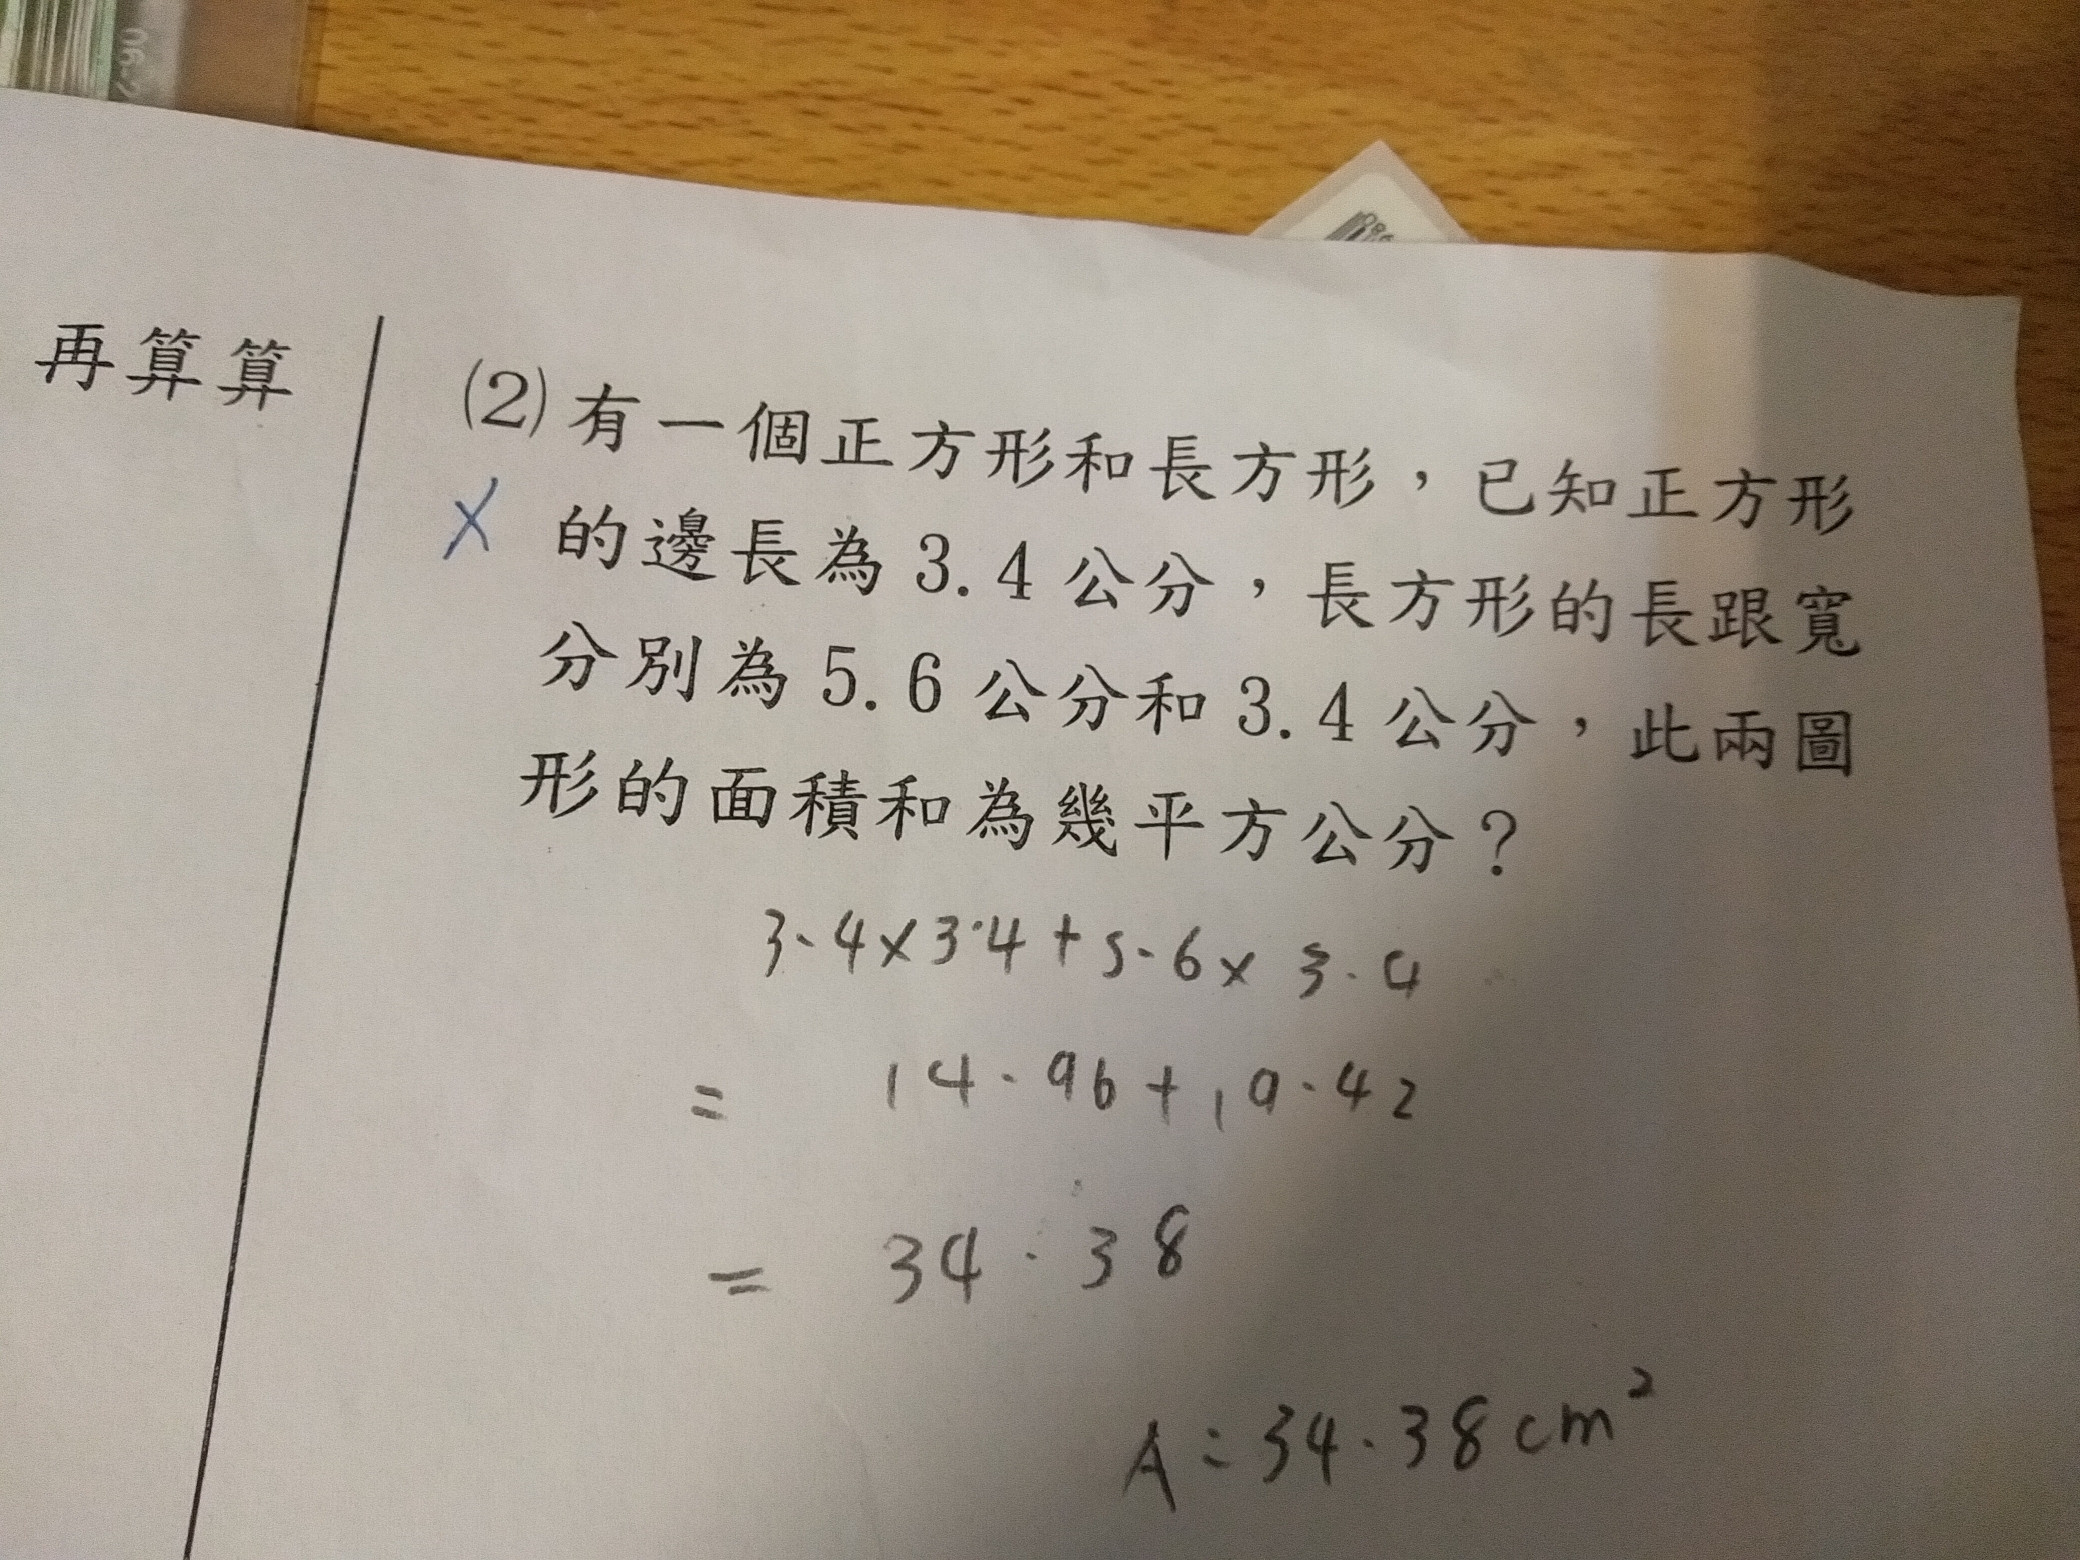 再算算
(2)有一個正方形和長方形，已知正方形
X 的邊長為3.4公分，長方形的長跟寬
分別為5.6公分和3.4公分，此兩圖
形的面積和為幾平方公分？
3.4×3.4+5.6×3.4
= 14.96+19.42
= 34.38
A:34.38cm²